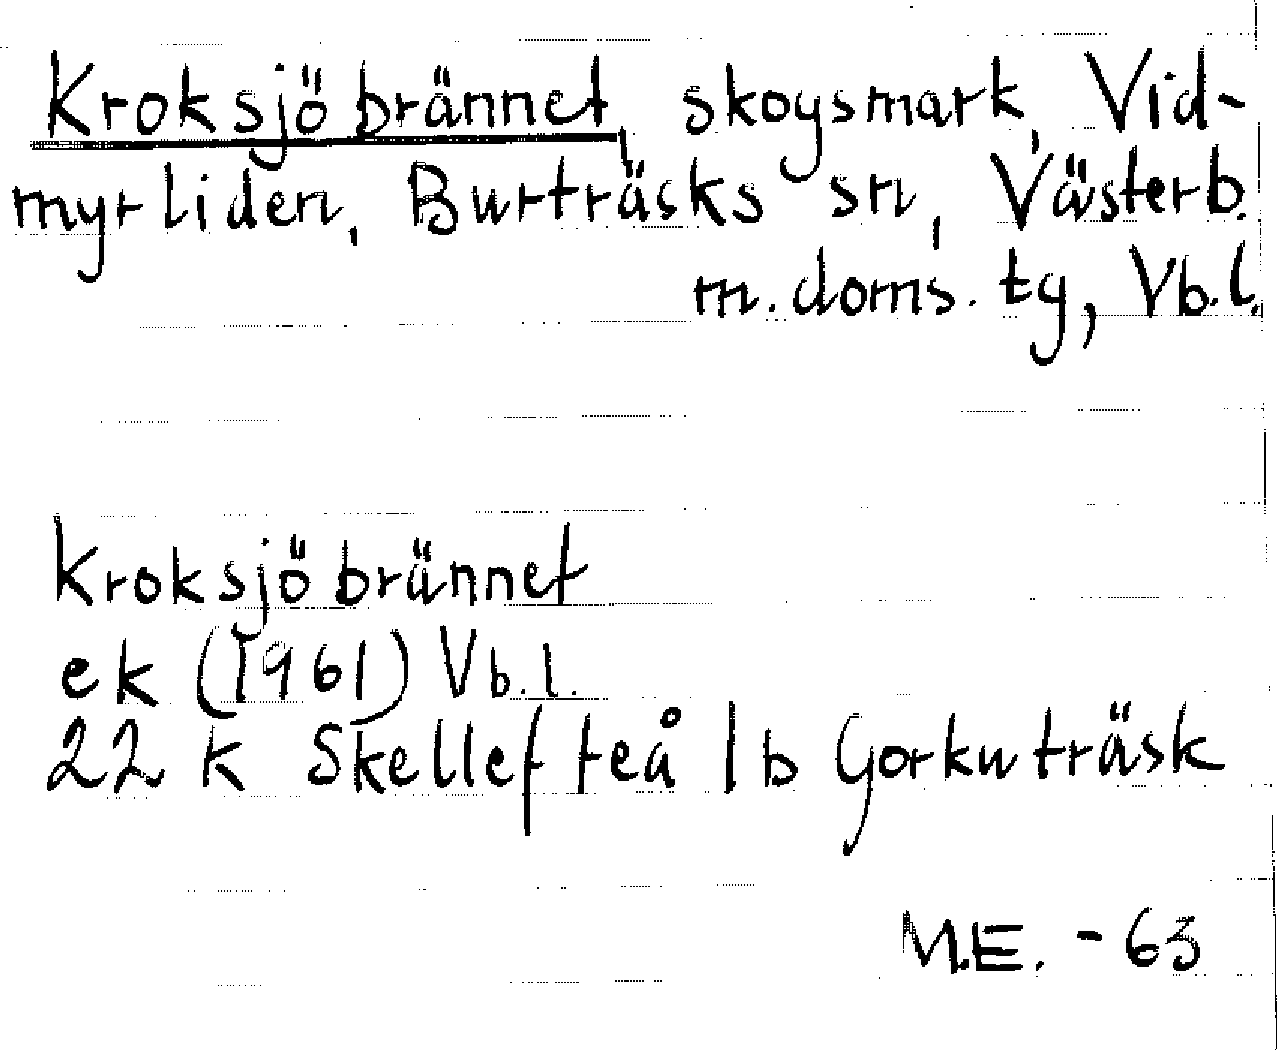 Kroksjöbrännet, skogsmark, Vid-
myrliden, Burträsks sn, Västerb.
m. doms. tg, Vb.l.
Kroksjöbrännet
ek (1961) Vb.l.
22 K Skellefteå 1b Gorkuträsk
M.E. - 63